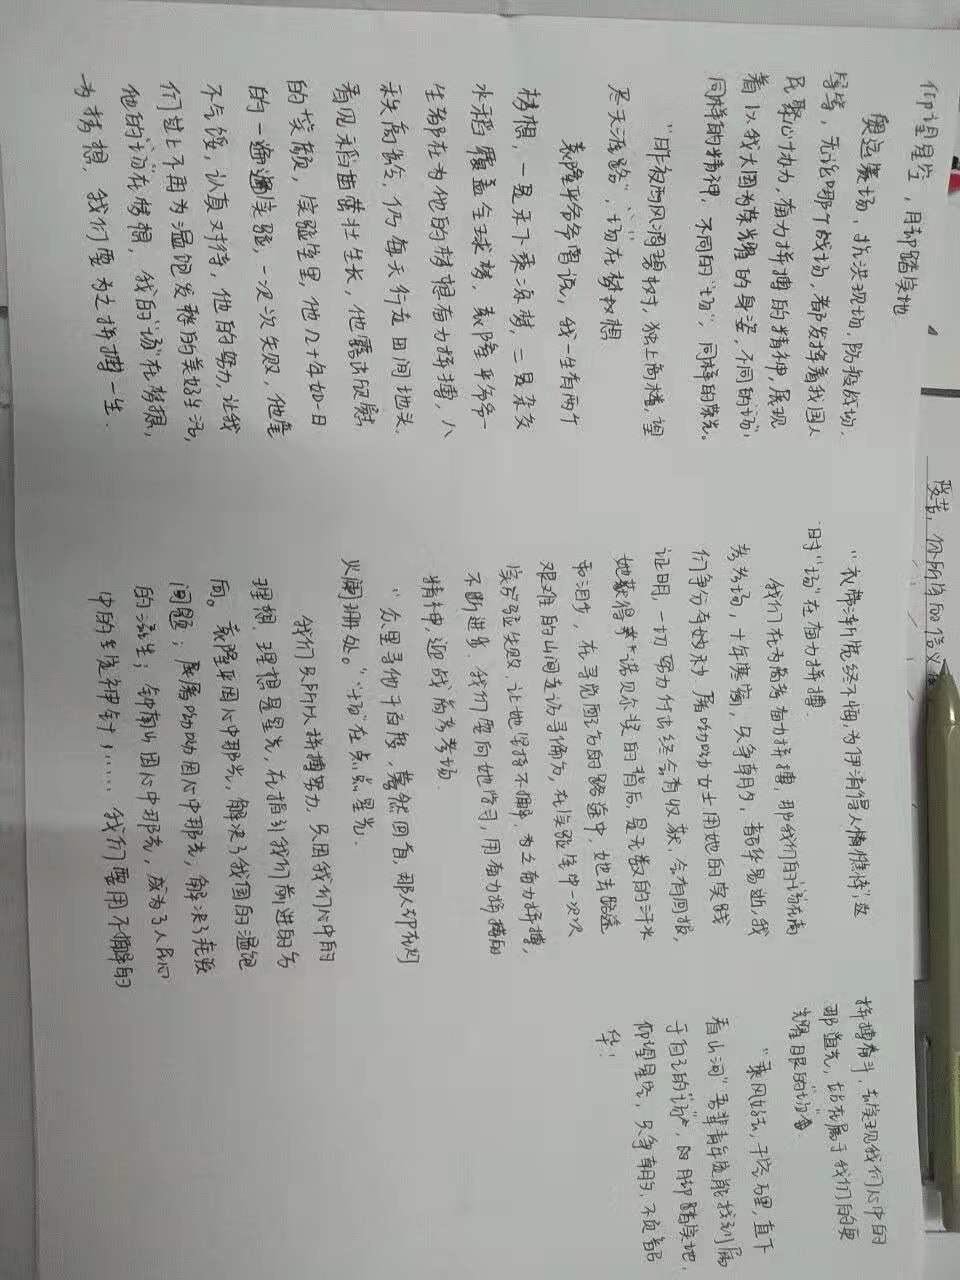 仰望星空，月却踏实地
奥运赛场，抗洪现场，防疫战场，
等等，无论哪个战场，都发挥着我国人
民聚心协力，奋力拼搏的精神，展现
着以我大国为荣耀的身姿，不同的"场"，
同样的精神，不同的"场"，同样的荣光。
"昨夜西风凋碧树，独上高楼，望
尽天涯路"，"场"在梦想
袁隆平爷爷曾说，我一生有两个
梦想，一是禾下乘凉梦，二是杂交
水稻覆盖全球梦，袁隆平爷爷一
生都在为他的梦想奋力拼搏，八
秩高龄，仍每天行走田间地头，
看见禾苗茁壮生长，他露出欣慰
的笑颜，实验室里，他几十年如一日
的一遍遍实验，一次失败，他毫
不气馁，认真对待，他的努力，让我
们过上不再为温饱发愁的美好生活，
他的"场"在梦想，我的"场"在梦想，
为梦想，我们要为之拼搏一生．
"衣带渐宽终不悔，为伊消得人憔悴"这
时"场"在奋力拼搏．
我们在为高考奋力拼搏，那我们的"场"在高
考考场，十年寒窗，只争朝夕，韶华易逝，我
们争分夺秒 屠呦呦女士用她的实践
证明，一切努力付出终会有收获，会有回报，
她获得诺贝尔奖的背后，是无数的汗水
和泪水，在寻觅配方的路途中，她去路途
艰难的山间走访寻偏方，在实验室中一次次
实验失败，让她坚持不懈，为之奋力拼搏，
不断进步，我们要向她学习，用奋力拼搏的
精神，迎战高考考场．
"众里寻他千百度，蓦然回首，那人却在灯
火阑珊处。""场"在点点星光．
我们之所以拼搏努力，只因我们心中的
理想，理想是星光，在指引我们前进的方
向。袁隆平因心中那光，解决了我国的温饱
问题；屠呦呦因心中那光，解决了疟疾
的滋生；钟南山因心中那光，成为了人民心
中的定海神针，…… 我们要用不懈的
拼搏奋斗，去实现我们心中的
那道光，站在属于我们自己的更
耀眼的"场"上．
"乘风好去，千空万里，直下
看山河"吾辈青年定能找到属
于自己的"场"，月却踏实地，
仰望星空，只争朝夕，不负韶
华！